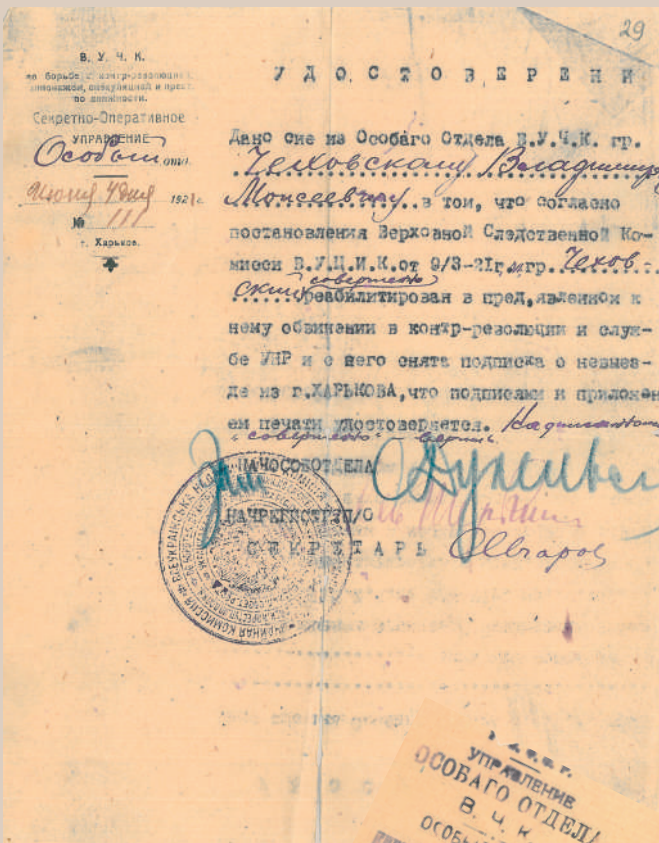 29
В. У. Ч. К.
по борьбе с контр-революцией,
шпионажем, спекуляцией и прест.
по должности.
Секретно-Оперативное
УПРАВЛЕНИЕ
Особый отд.
Июня 4 дня 1921г.
№ 111
г. Харьков.
УДОСТОВЕРЕНИ
Дано сие из Особаго Отдела В.У.Ч.К. гр.
Чеховскому Владимиру
Моисеевичу в том, что согласно
постановления Верховной Следственной Ко-
мисси В.У.Ц.И.К. от 9/3-21г. гр. Чехов-
ский совершенно реабилитирован в пред,явленном к
нему обвинении в контр-революции и служ-
бе УНР и с него снята подписка о невыез-
де из г.ХАРЬКОВА, что подписями и приложен
ем печати удостоверяется.
"совершенно" верить.
НАЧОСОБОТДЕЛА
НАЧРЕГИСТР П/О
СЕКРЕТАРЬ
УПРАВЛЕНИЕ
ОСОБАГО ОТДЕЛА
В. Ч. К